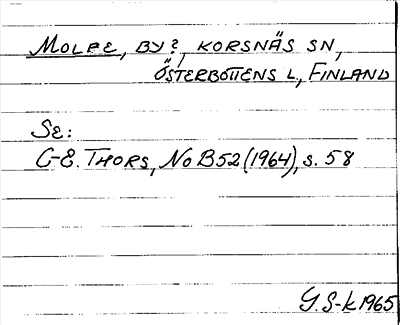 MOLPE, BY?, KORSNÄS SN,
ÖSTERBOTTENS L, FINLAND
SE:
C-E. THORS, No B52 (1964), s. 58
G. S-k 1965